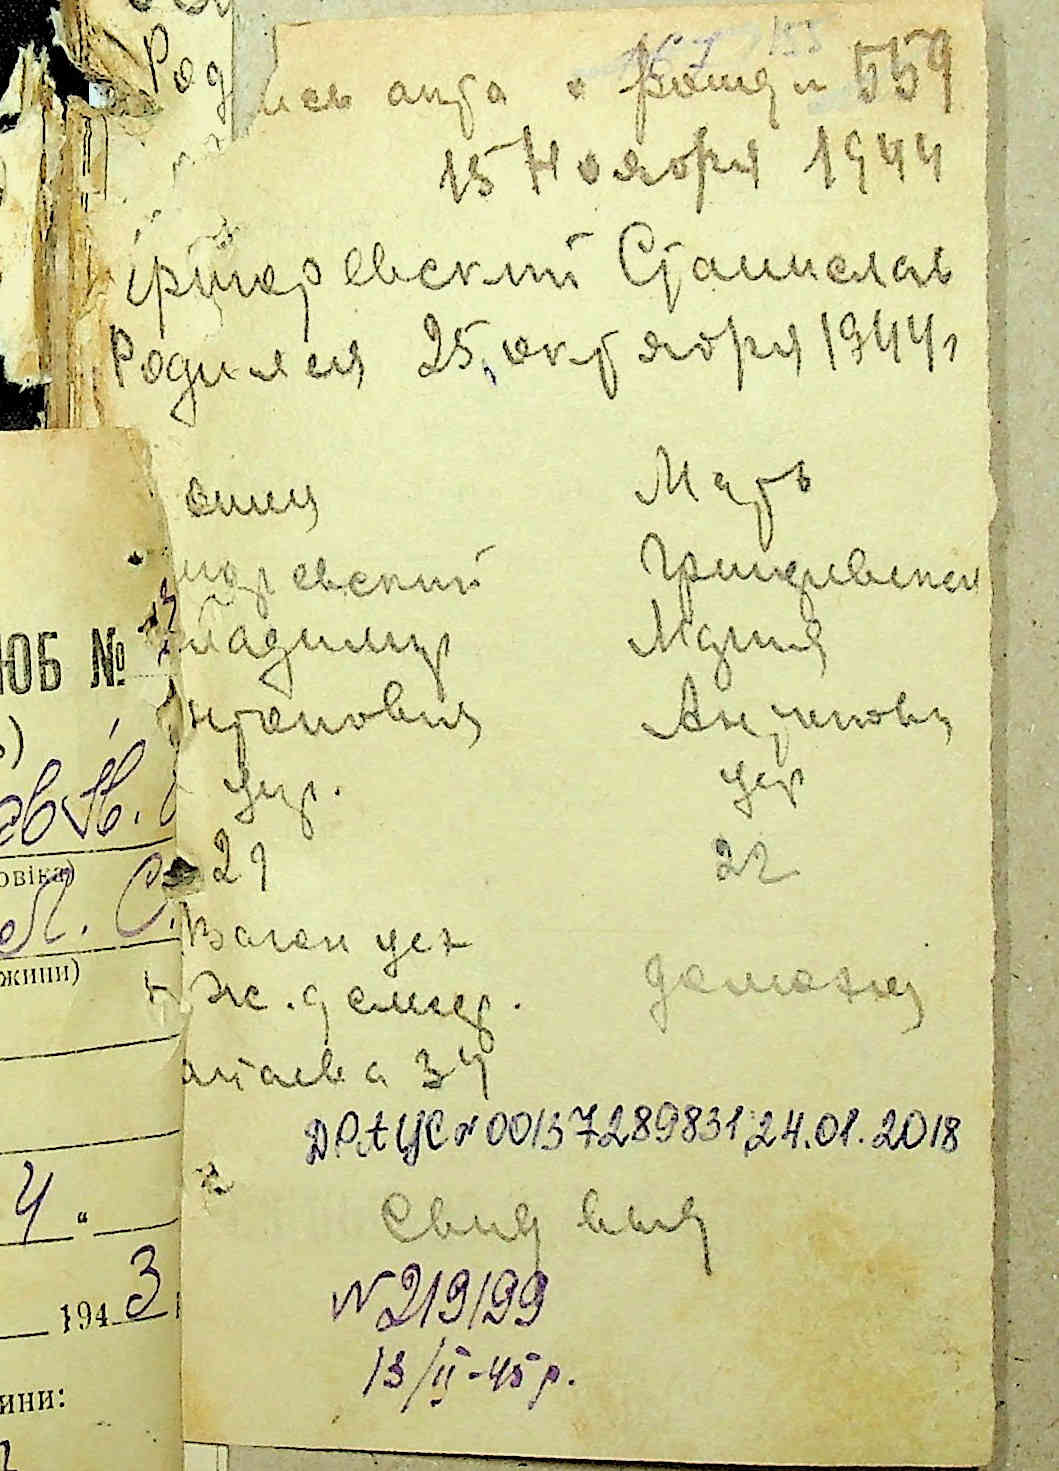 Род
ись акта о рожд № 559
15 Ноября 1944
Григоревский Станислав
Родился 25 октября 1944г
Отец
Мать
горевский
Григоревская
ладимир
Мария
нтонович
Антоновн
укр.
укр
29
22
Вагон уст
Ж. д
домохоз
34
ЮБ №
овіка)
жини)
4 "
194 3
ини:
ДРАЦС № 00137289831 24.01.2018
Свид выд
№ 219199
13/II-45р.